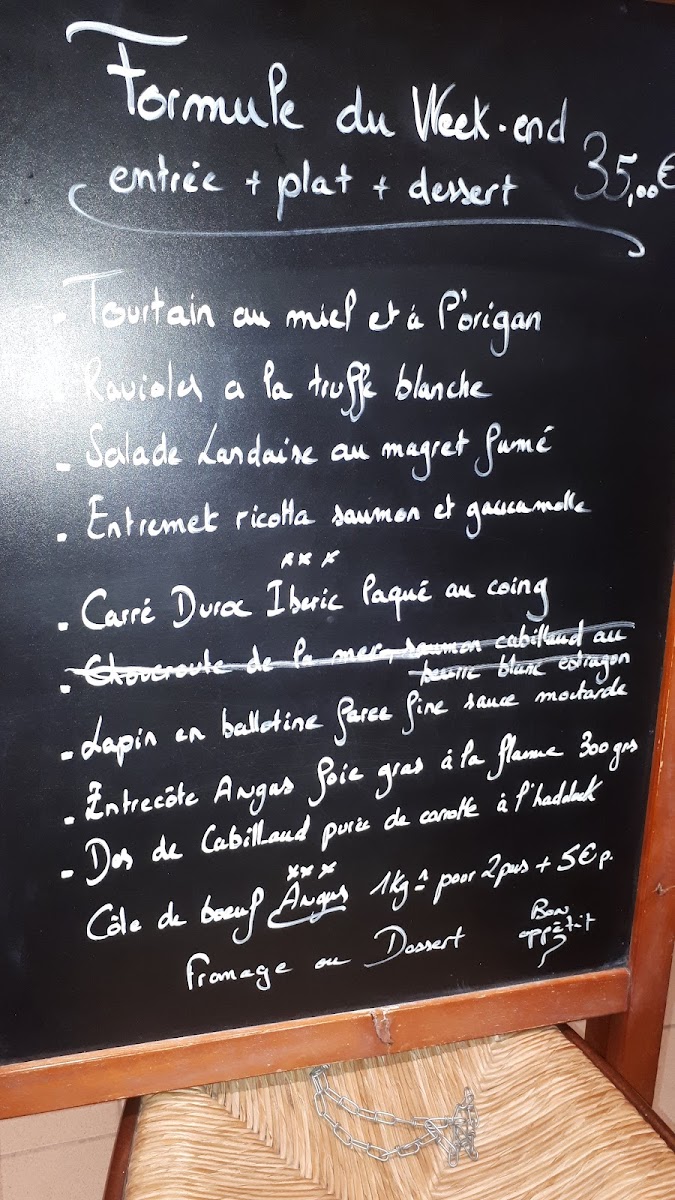 Formule du Week-end
entrée + plat + dessert 35,00€
- Tourtain au miel et à l'origan
Ravioles a la truffe blanche
- Salade Landaise au magret fumé
- Entremet ricotta saumon et gaucamolle
xxx
- Carré Duroc Iberic laqué au coing
- Choucroute de la mer, saumon cabillaud au
beurre blanc estragon
- Lapin en ballotine farce fine sauce moutarde
- Entrecôte Angus foie gras à la flamme 300 grs
- Dos de Cabillaud purée de carotte à l'haddock
xxx
Côte de boeuf Angus 1kg pour 2 pers + 5€ p.
Fromage ou Dessert
Bon
appétit